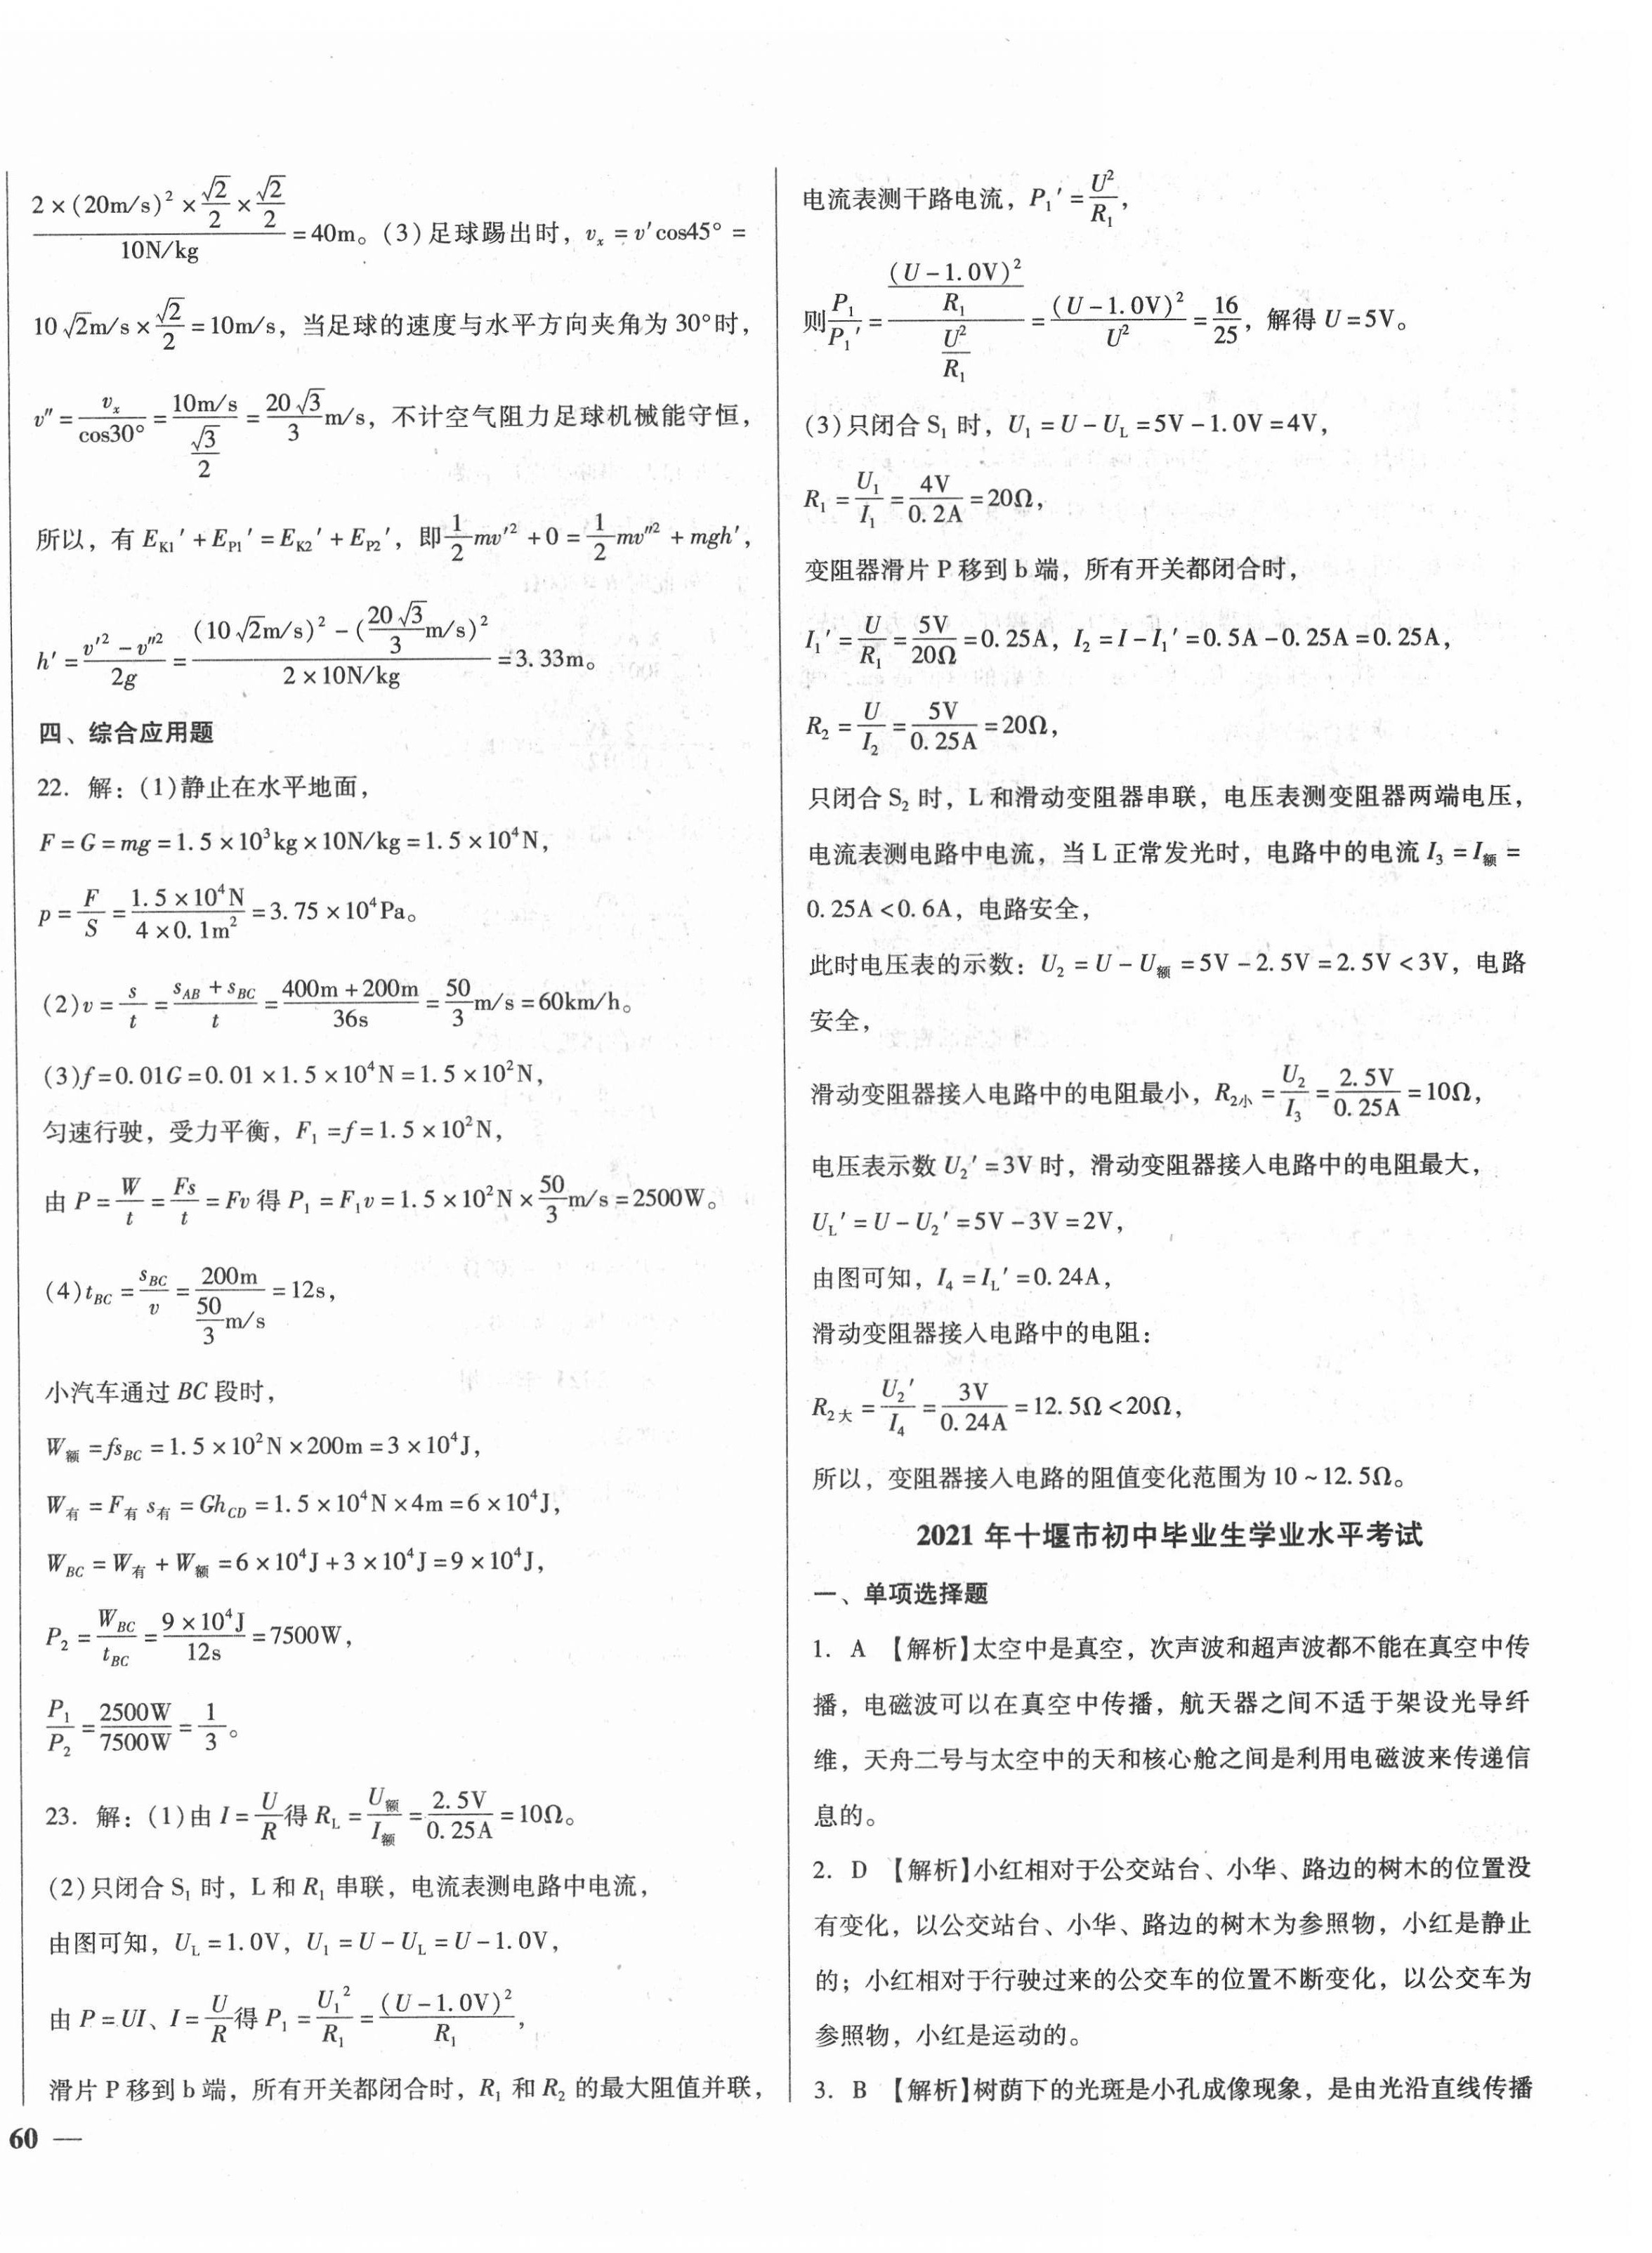 $\frac{2×(20m/s)^2×\frac{\sqrt{2}}{2}×\frac{\sqrt{2}}{2}}{10N/kg}$=40m。(3)足球踢出时，$v_x$=v′cos45°=
$10\sqrt{2}$m/s×$\frac{\sqrt{2}}{2}$=10m/s，当足球的速度与水平方向夹角为30°时，
v″=$\frac{v_x}{cos30°}$=$\frac{10m/s}{\frac{\sqrt{3}}{2}}$=$\frac{20\sqrt{3}}{3}$m/s，不计空气阻力足球机械能守恒，
所以，有$E_{K1}$′+$E_{P1}$′=$E_{K2}$′+$E_{P2}$′，即$\frac{1}{2}$mv′²+0=$\frac{1}{2}$mv″²+mgh′，
h′=$\frac{v′^2-v″^2}{2g}$=$\frac{(10\sqrt{2}m/s)^2-(\frac{20\sqrt{3}}{3}m/s)^2}{2×10N/kg}$=3.33m。
四、综合应用题
22. 解：(1)静止在水平地面，
F=G=mg=1.5×10³kg×10N/kg=1.5×10⁴N，
p=$\frac{F}{S}$=$\frac{1.5×10^4N}{4×0.1m^2}$=3.75×10⁴Pa。
(2)v=$\frac{s}{t}$=$\frac{s_{AB}+s_{BC}}{t}$=$\frac{400m+200m}{36s}$=$\frac{50}{3}$m/s=60km/h。
(3)f=0.01G=0.01×1.5×10⁴N=1.5×10²N，
匀速行驶，受力平衡，F₁=f=1.5×10²N，
由P=$\frac{W}{t}$=$\frac{Fs}{t}$=Fv得P₁=F₁v=1.5×10²N×$\frac{50}{3}$m/s=2500W。
(4)$t_{BC}$=$\frac{s_{BC}}{v}$=$\frac{200m}{\frac{50}{3}m/s}$=12s，
小汽车通过BC段时，
$W_{额}$=$fs_{BC}$=1.5×10²N×200m=3×10⁴J，
$W_{有}$=$F_{有}$$s_{有}$=$Gh_{CD}$=1.5×10⁴N×4m=6×10⁴J，
$W_{BC}$=$W_{有}$+$W_{额}$=6×10⁴J+3×10⁴J=9×10⁴J，
P₂=$\frac{W_{BC}}{t_{BC}}$=$\frac{9×10^4J}{12s}$=7500W，
$\frac{P_1}{P_2}$=$\frac{2500W}{7500W}$=$\frac{1}{3}$。
23. 解：(1)由I=$\frac{U}{R}$得$R_L$=$\frac{U_{额}}{I_{额}}$=$\frac{2.5V}{0.25A}$=10Ω。
(2)只闭合S₁时，L和R₁串联，电流表测电路中电流，
由图可知，$U_L$=1.0V，U₁=U-$U_L$=U-1.0V，
由P=UI、I=$\frac{U}{R}$得P₁=$\frac{U_1^2}{R_1}$=$\frac{(U-1.0V)^2}{R_1}$，
滑片P移到b端，所有开关都闭合时，R₁和R₂的最大阻值并联，
60 —
电流表测干路电流，P₁′=$\frac{U^2}{R_1}$，
则$\frac{P_1}{P_1′}$=$\frac{\frac{(U-1.0V)^2}{R_1}}{\frac{U^2}{R_1}}$=$\frac{(U-1.0V)^2}{U^2}$=$\frac{16}{25}$，解得U=5V。
(3)只闭合S₁时，U₁=U-$U_L$=5V-1.0V=4V，
R₁=$\frac{U_1}{I_1}$=$\frac{4V}{0.2A}$=20Ω，
变阻器滑片P移到b端，所有开关都闭合时，
I₁′=$\frac{U}{R_1}$=$\frac{5V}{20Ω}$=0.25A，I₂=I-I₁′=0.5A-0.25A=0.25A，
R₂=$\frac{U}{I_2}$=$\frac{5V}{0.25A}$=20Ω，
只闭合S₂时，L和滑动变阻器串联，电压表测变阻器两端电压，
电流表测电路中电流，当L正常发光时，电路中的电流I₃=$I_{额}$=
0.25A<0.6A，电路安全，
此时电压表的示数：U₂=U-$U_{额}$=5V-2.5V=2.5V<3V，电路
安全，
滑动变阻器接入电路中的电阻最小，$R_{2小}$=$\frac{U_2}{I_3}$=$\frac{2.5V}{0.25A}$=10Ω，
电压表示数U₂′=3V时，滑动变阻器接入电路中的电阻最大，
$U_L$′=U-U₂′=5V-3V=2V，
由图可知，I₄=$I_L$′=0.24A，
滑动变阻器接入电路中的电阻：
$R_{2大}$=$\frac{U_2′}{I_4}$=$\frac{3V}{0.24A}$=12.5Ω<20Ω，
所以，变阻器接入电路的阻值变化范围为10~12.5Ω。
2021年十堰市初中毕业生学业水平考试
一、单项选择题
1. A 【解析】太空中是真空，次声波和超声波都不能在真空中传
播，电磁波可以在真空中传播，航天器之间不适于架设光导纤
维，天舟二号与太空中的天和核心舱之间是利用电磁波来传递信
息的。
2. D 【解析】小红相对于公交站台、小华、路边的树木的位置没
有变化，以公交站台、小华、路边的树木为参照物，小红是静止
的；小红相对于行驶过来的公交车的位置不断变化，以公交车为
参照物，小红是运动的。
3. B 【解析】树荫下的光斑是小孔成像现象，是由光沿直线传播